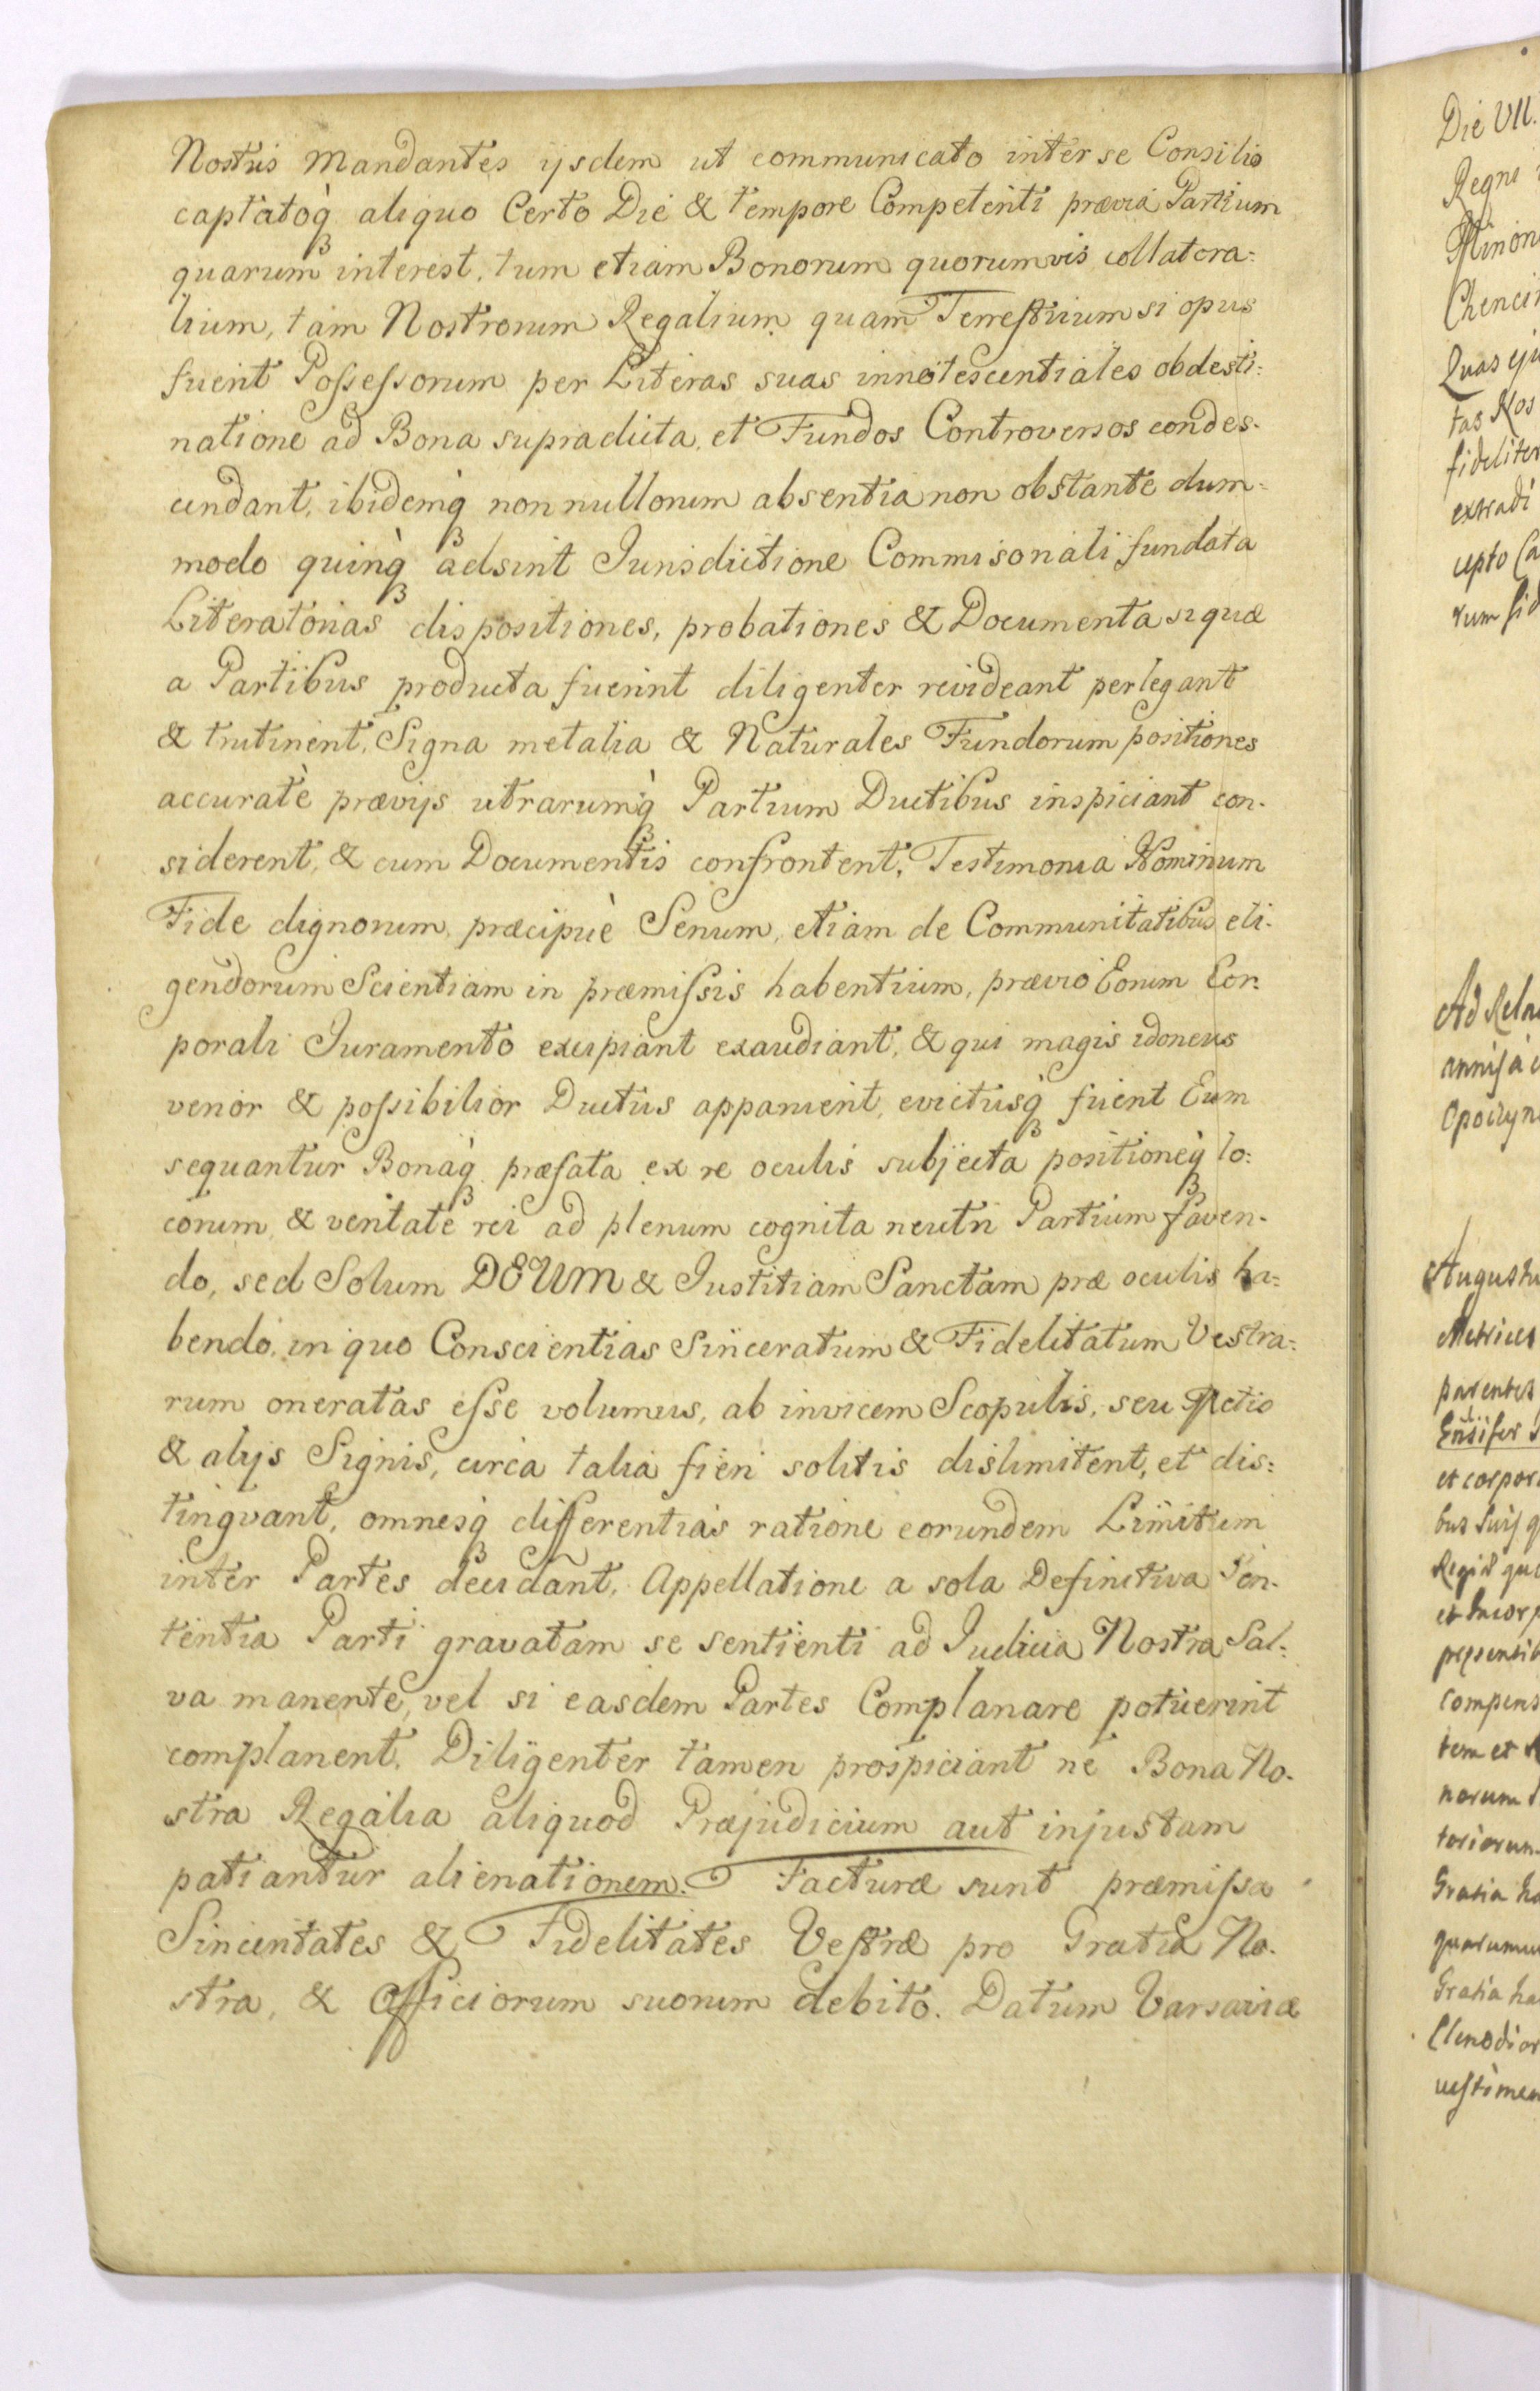 Nostris Mandantes ijsdem ut communicato inter se Consilio
captatoq̀ aliquo Certo Die & tempore Competenti prævia Partium
quarum interest, tum etiam Bonorum quorumvis collatera:
lium, tam Nostrorum Regalium quam Terrestrium si opus
fuerit Possessorum per Literas suas innotescentiales obdesti:
natione ad Bona supradicta, et Fundos Controversos condes-
cendant, ibidemq̀ non nullorum absentia non obstante dum=
modo quinq̀ adsint Jurisdictione Commisonali fundata
Literatorias dispositiones, probationes & Documenta si quæ
a Partibus producta fuerint diligenter revideant perlegant
& trutinent, Signa metalia & Naturales Fundorum positiones
accuratè prævijs utrarumq̀ Partium Ductibus inspiciant con-
siderent, & cum Documentis confrontent, Testimonia Hominum
Fide dignorum, præcipuè Senum, etiam de Communitatibus eli-
gendorum Scientiam in præmissis habentium, prævio Eorum Cor:
porali Juramento excipiant exaudiant, & qui magis idoneus
verior & possibilior Ductus apparuerit, evictusq̀ fuerit Eum
sequantur Bonaq̀ præfata ex re oculis subjecta positioneq̀ lo:
corum, & veritate rei ad plenum cognita neutri Partium faven-
do, sed Solum DEUM & Justitiam Sanctam præ oculis ha=
bendo, in quo Conscientias Sinceratum & Fidelitatum Vestra:
rum oneratas esse volumus, ab invicem Scopulis, seu Actio
& alijs Signis, circa talia fieri solitis dislimitent, et dis:
tingvant, omnesq̀ differentias ratione eorundem Limitum
inter Partes decidant, Appellatione a sola Definitiva Sen-
tentia Parti gravatam se sentienti ad Judicia Nostra Sal:
va manente, vel si easdem Partes Complanare potuerint
complanent. Diligenter tamen prospiciant ne Bona No-
stra Regalia aliquod Præjudicium aut injustam
patiantur alienationem. Facturæ sunt præmissa
Sinceritates & Fidelitates Vestræ pro Gratia No-
stra, & Officiorum suorum debito. Datum Varsaviæ
Die VII.
Regni
Chenci
tas Nos
fideliter
extradi
cepto Ca
Ad Rela
Augustu
parentes
Ensifer
et corpor
Regis
compens
tem et
norum
toriorum
Gratia ha
Gratia ha
Clenodior